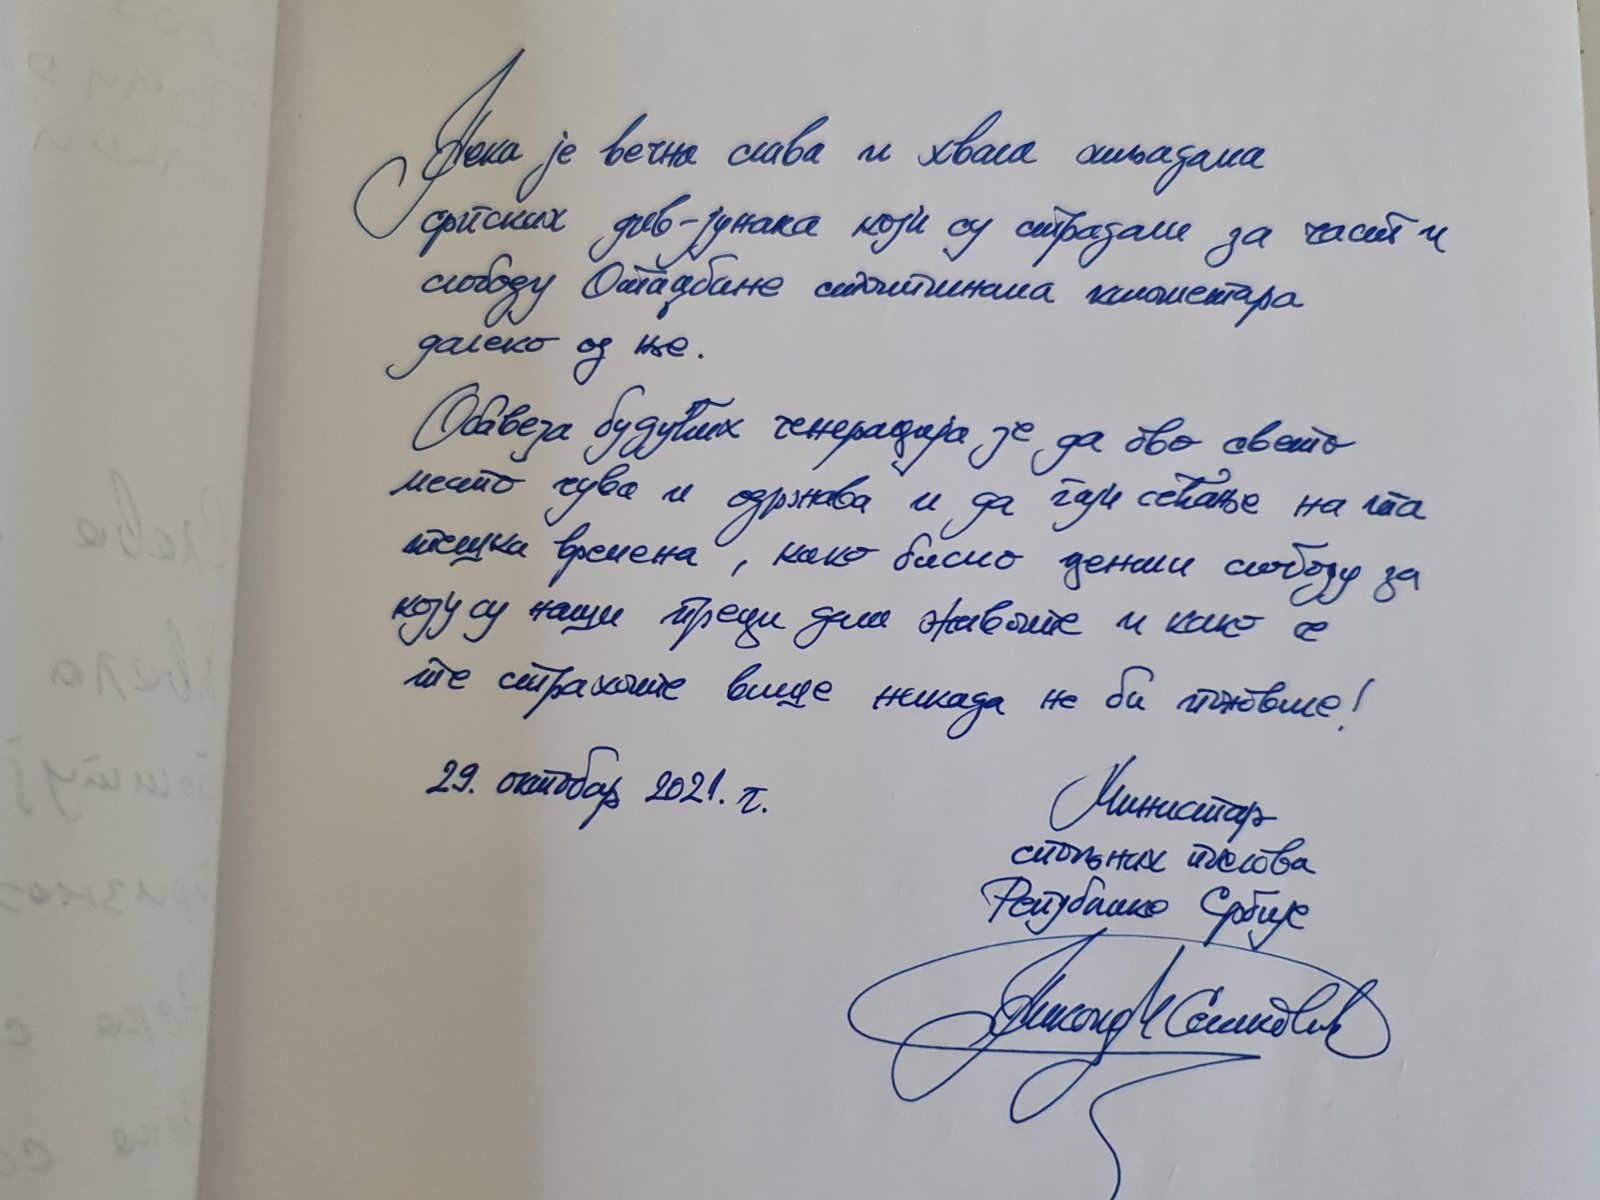 Нека је вечна слава и хвала хиљадама
српских див-јунака који су страдали за част и
слободу Отаџбине стотинама километара
далеко од ње.
Обавеза будућих генерација је да ово свето
место чува и одржава и да гаји сећање на та
тешка времена, како бисмо ценили слободу за
коју су наши преци дали животе и како се
те страхоте више никада не би поновиле!
29. октобар 2021. г.
Министар
спољних послова
Републике Србије
Никола Селаковић